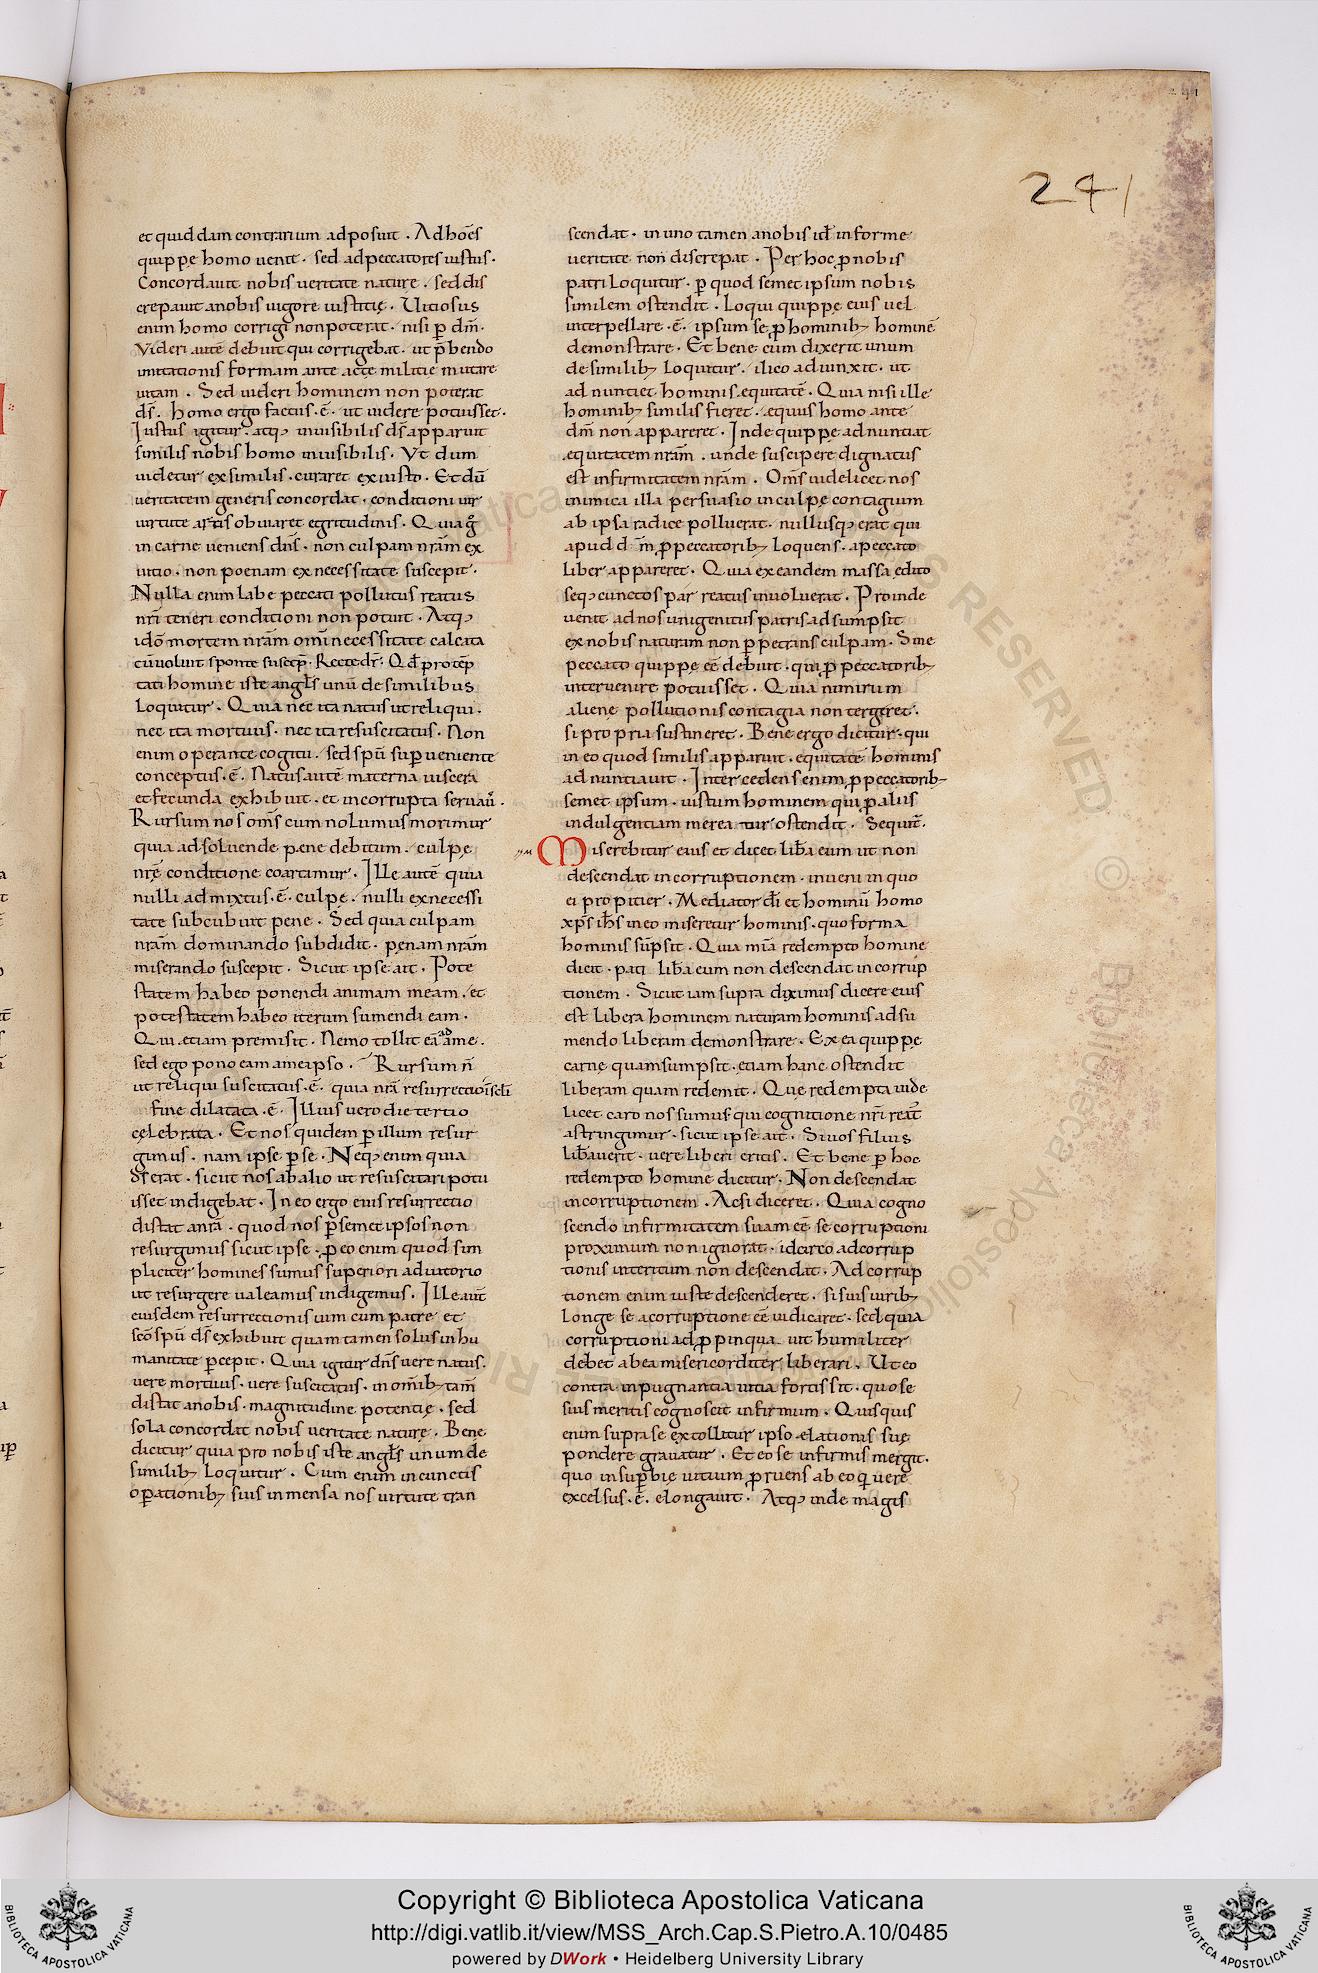 241
et quiddam contrarium adposuit . Ad hões
quippe homo uenit . sed ad peccatores iustus .
Concordauit nobis ueritate nature . sed dis
crepauit a nobis uigore iustitię . Uitiosus
enim homo corrigi non poterat . nisi p dm̄ .
Videri autē debuit qui corrigebat . ut p̄bendo
imitationis formam ante acte militie mutare
uitam . Sed uideri hominem non poterat
ds̄ . homo ergo factus . ē . ut uidere potuisset .
Iustus igitur . atq; inuisibilis ds̄ apparuit
similis nobis homo inuisibilis . Vt dum
uidetur ex similis . curaret ex iusto . Et dū
ueritatem generis concordat . conditioni uir
uirtute artis obuiaret egritudinis . Quia g̊
in carne ueniens dn̄s . non culpam nr̄am ex
uitio . non poenam ex necessitate suscepit .
Nulla enim labe peccati pollutus reatus
nr̄i teneri conditioni non potuit . Atq;
idō mortem nr̄am om̄i necessitate calcata
cū uoluit sponte suscep̄ . Recte dr̄ . Qđ pro tēp
tati homine iste angl̄s unū de similibus
loquitur . Quia nec ita natus ut reliqui .
nec ita mortuus . nec ita resuscitatus . Non
enim operante cogitu . sed sp̄u supueniente
conceptus . ē . Natus autē materna uiscera
et fecunda exhibuit . et incorrupta seruau᷒ .
Rursum nos om̄s cum nolumus morimur
quia ad soluende pene debitum . culpę
nr̄ę conditione coartimur . Ille autē quia
nulli admixtus . ē . culpę . nulli ex necessi
tate subcubuit pene . Sed quia culpam
nr̄am dominando subdidit . pęnam nr̄am
miserando suscepit . Sicut ipse ait . Pote
statem habeo ponendi animam meam . et
potestatem habeo iterum sumendi eam .
Qui etiam premisit . Nemo tollit eā a me .
sed ego pono eam a me ipso . Rursum n̄
ut reliqui suscitatus . ē . quia nr̄a resurrectio ī sc̄li
fine dilatata . ē . Illius uero die tertio
celebrata . Et nos quidem p illum resur
gimus . nam ipse p se . Neq; enim quia
ds̄ erat . sicut nos ab alio ut resuscitari potu
isset indigebat . In eo ergo eius resurrectio
distat a nr̄a . quod nos p semet ipsos non
resurgimus sicut ipse . p eo enim quod sim
pliciter homines sumus superiori adiutorio
ut resurgere ualeamus indigemus . Ille aut̄
eiusdem resurrectionis uim cum patre et
sc̄o sp̄u ds̄ exhibuit quam tamen solus in hu
manitate pcepit . Quia igitur dn̄s uere natus .
uere mortuus . uere suscitatus . in om̄ib; tam̄
distat a nobis . magnitudine potentię . sed
sola concordat nobis ueritate naturę . Bene
dicitur quia pro nobis iste angl̄s unum de
similib; loquitur . Cum enim in cunctis
opationib; suis inmensa nos uirtute tran
scendat . in uno tamen a nobis id ÷ in forme
ueritate non discrepat . Per hoc p nobis
patri loquitur . p quod semet ipsum nobis
similem ostendit . Loqui quippe eius uel
interpellare . ē . ipsum se p hominib; hominē
demonstrare . Et bene cum dixerit unum
de similib; loquitur . ilico adiunxit . ut
ad nuntiet hominis equitatē . Quia nisi ille
hominib; similis fieret . equus homo ante
dm̄ non appareret . Inde quippe adnuntiat
equitatem nr̄am . unde suscipere dignatus
est infirmitatem nr̄am . Om̄s uidelicet nos
inimica illa persuasio in culpę contagium
ab ipsa radice polluerat . nullusq; erat qui
apud dm̄ p peccatorib; loquens . a peccato
liber appareret . Quia ex eandem massa edito
seq; cunctos par reatus inuoluerat . Proinde
uenit ad nos unigenitus patris adsumpsit
ex nobis naturam non ppetrans culpam . Sine
peccato quippe eē debuit . qui p peccatorib;
interuenire potuisset . Quia nimirum
alienę pollutionis contagia non tergeret .
si propria sustineret . Bene ergo dicitur . qui
in eo quod similis apparuit . equitatē hominis
adnuntiauit . Intercedens enim p peccatorib;
semet ipsum . iustum hominem qui p aliis
indulgentiam mereatur ostendit . Sequit̄ .
Miserebitur eius et dicet lib̄a eum ut non
descendat in corruptionem . inueni in quo
ei propitier . Mediator dī et hominū homo
xp̄s ih̄s in eo miseretur hominis . quo forma
hominis sūpsit . Quia mīa redempto homine
dicit . pati lib̄a eum non descendat in corrup
tionem . Sicut iam supra diximus dicere eius
est libera hominem naturam hominis adsu
mendo liberam demonstrare . Ex ea quippe
carne quam sumpsit . etiam hanc ostendit
liberam quam redemit . Quę redempta uide
licet caro nos sumus qui cognitione nr̄i reat᷒
astringimur . sicut ipse ait . Si uos filius
lib̄auerit . uere liberi eritis . Et bene p hoc
redempto homine dicitur . Non descendat
in corruptionem . Ac si diceret . Quia cogno
scendo infirmitatem suam eē se corruptioni
proximum non ignorat . idcirco ad corrup
tionis interitum non descendat . Ad corrup
tionem enim iuste descenderet . si suis uirib;
longe se a corruptione eē iudicaret . sed quia
corruptioni ad p pinqua uit humiliter
debet ab ea misericorditer liberari . Ut eo
contra inpugnantia uitia fortis sit . quo se
suis meritis cognoscit infirmum . Quisquis
enim supra se extollitur ipso elationis suę
pondere grauatur . Et eo se infirmis mergit .
quo in supbię uitium pruens ab eo q̄ uere
excelsus . ē . elongauit . Atq; inde magis
Copyright © Biblioteca Apostolica Vaticana
http://digi.vatlib.it/view/MSS_Arch.Cap.S.Pietro.A.10/0485
powered by DWork • Heidelberg University Library
BIBLIOTECA APOSTOLICA VATICANA
BIBLIOTECA APOSTOLICA VATICANA